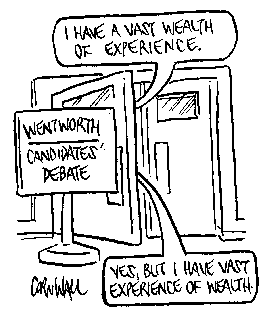 I HAVE A VAST WEALTH
OF EXPERIENCE.
WENTWORTH
CANDIDATES'
DEBATE
YES, BUT I HAVE VAST
EXPERIENCE OF WEALTH.